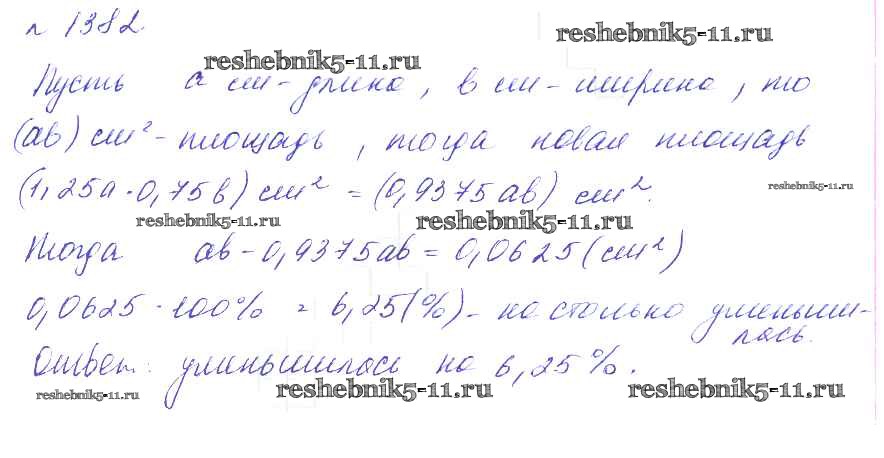 № 1382.
reshebnik5-11.ru
reshebnik5-11.ru
Пусть а см - длина, в см - ширина, то
(ab) см² - площадь, тогда новая площадь
(1,25а · 0,75в) см² = (0,9375ab) см².
reshebnik5-11.ru
reshebnik5-11.ru
reshebnik5-11.ru
Тогда ab - 0,9375ab = 0,0625 (см²)
0,0625 · 100% = 6,25(%) - на столько уменьши-
лась.
Ответ: уменьшилась на 6,25%.
reshebnik5-11.ru
reshebnik5-11.ru
reshebnik5-11.ru